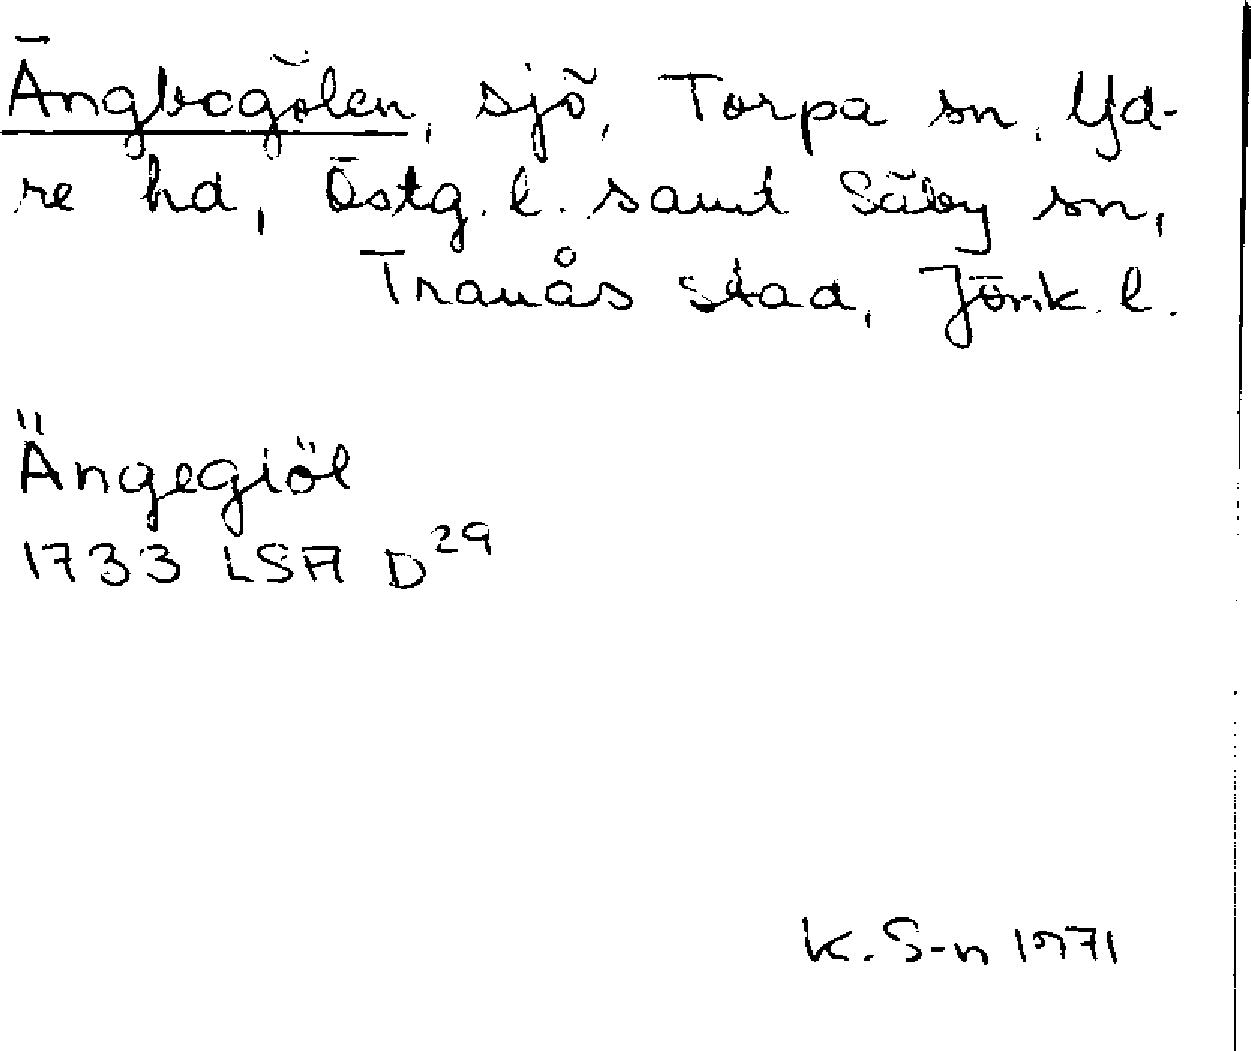 Ängbogölen, sjö, Torpa sn, Yd-
re hd, Östg. l. samt Säby sn,
Tranås stad, Jönk. l.
Ängegiöl
1733 LSA D29
K. S-n 1971